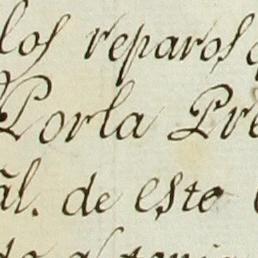 los reparos
Porla Pre
āl. de este